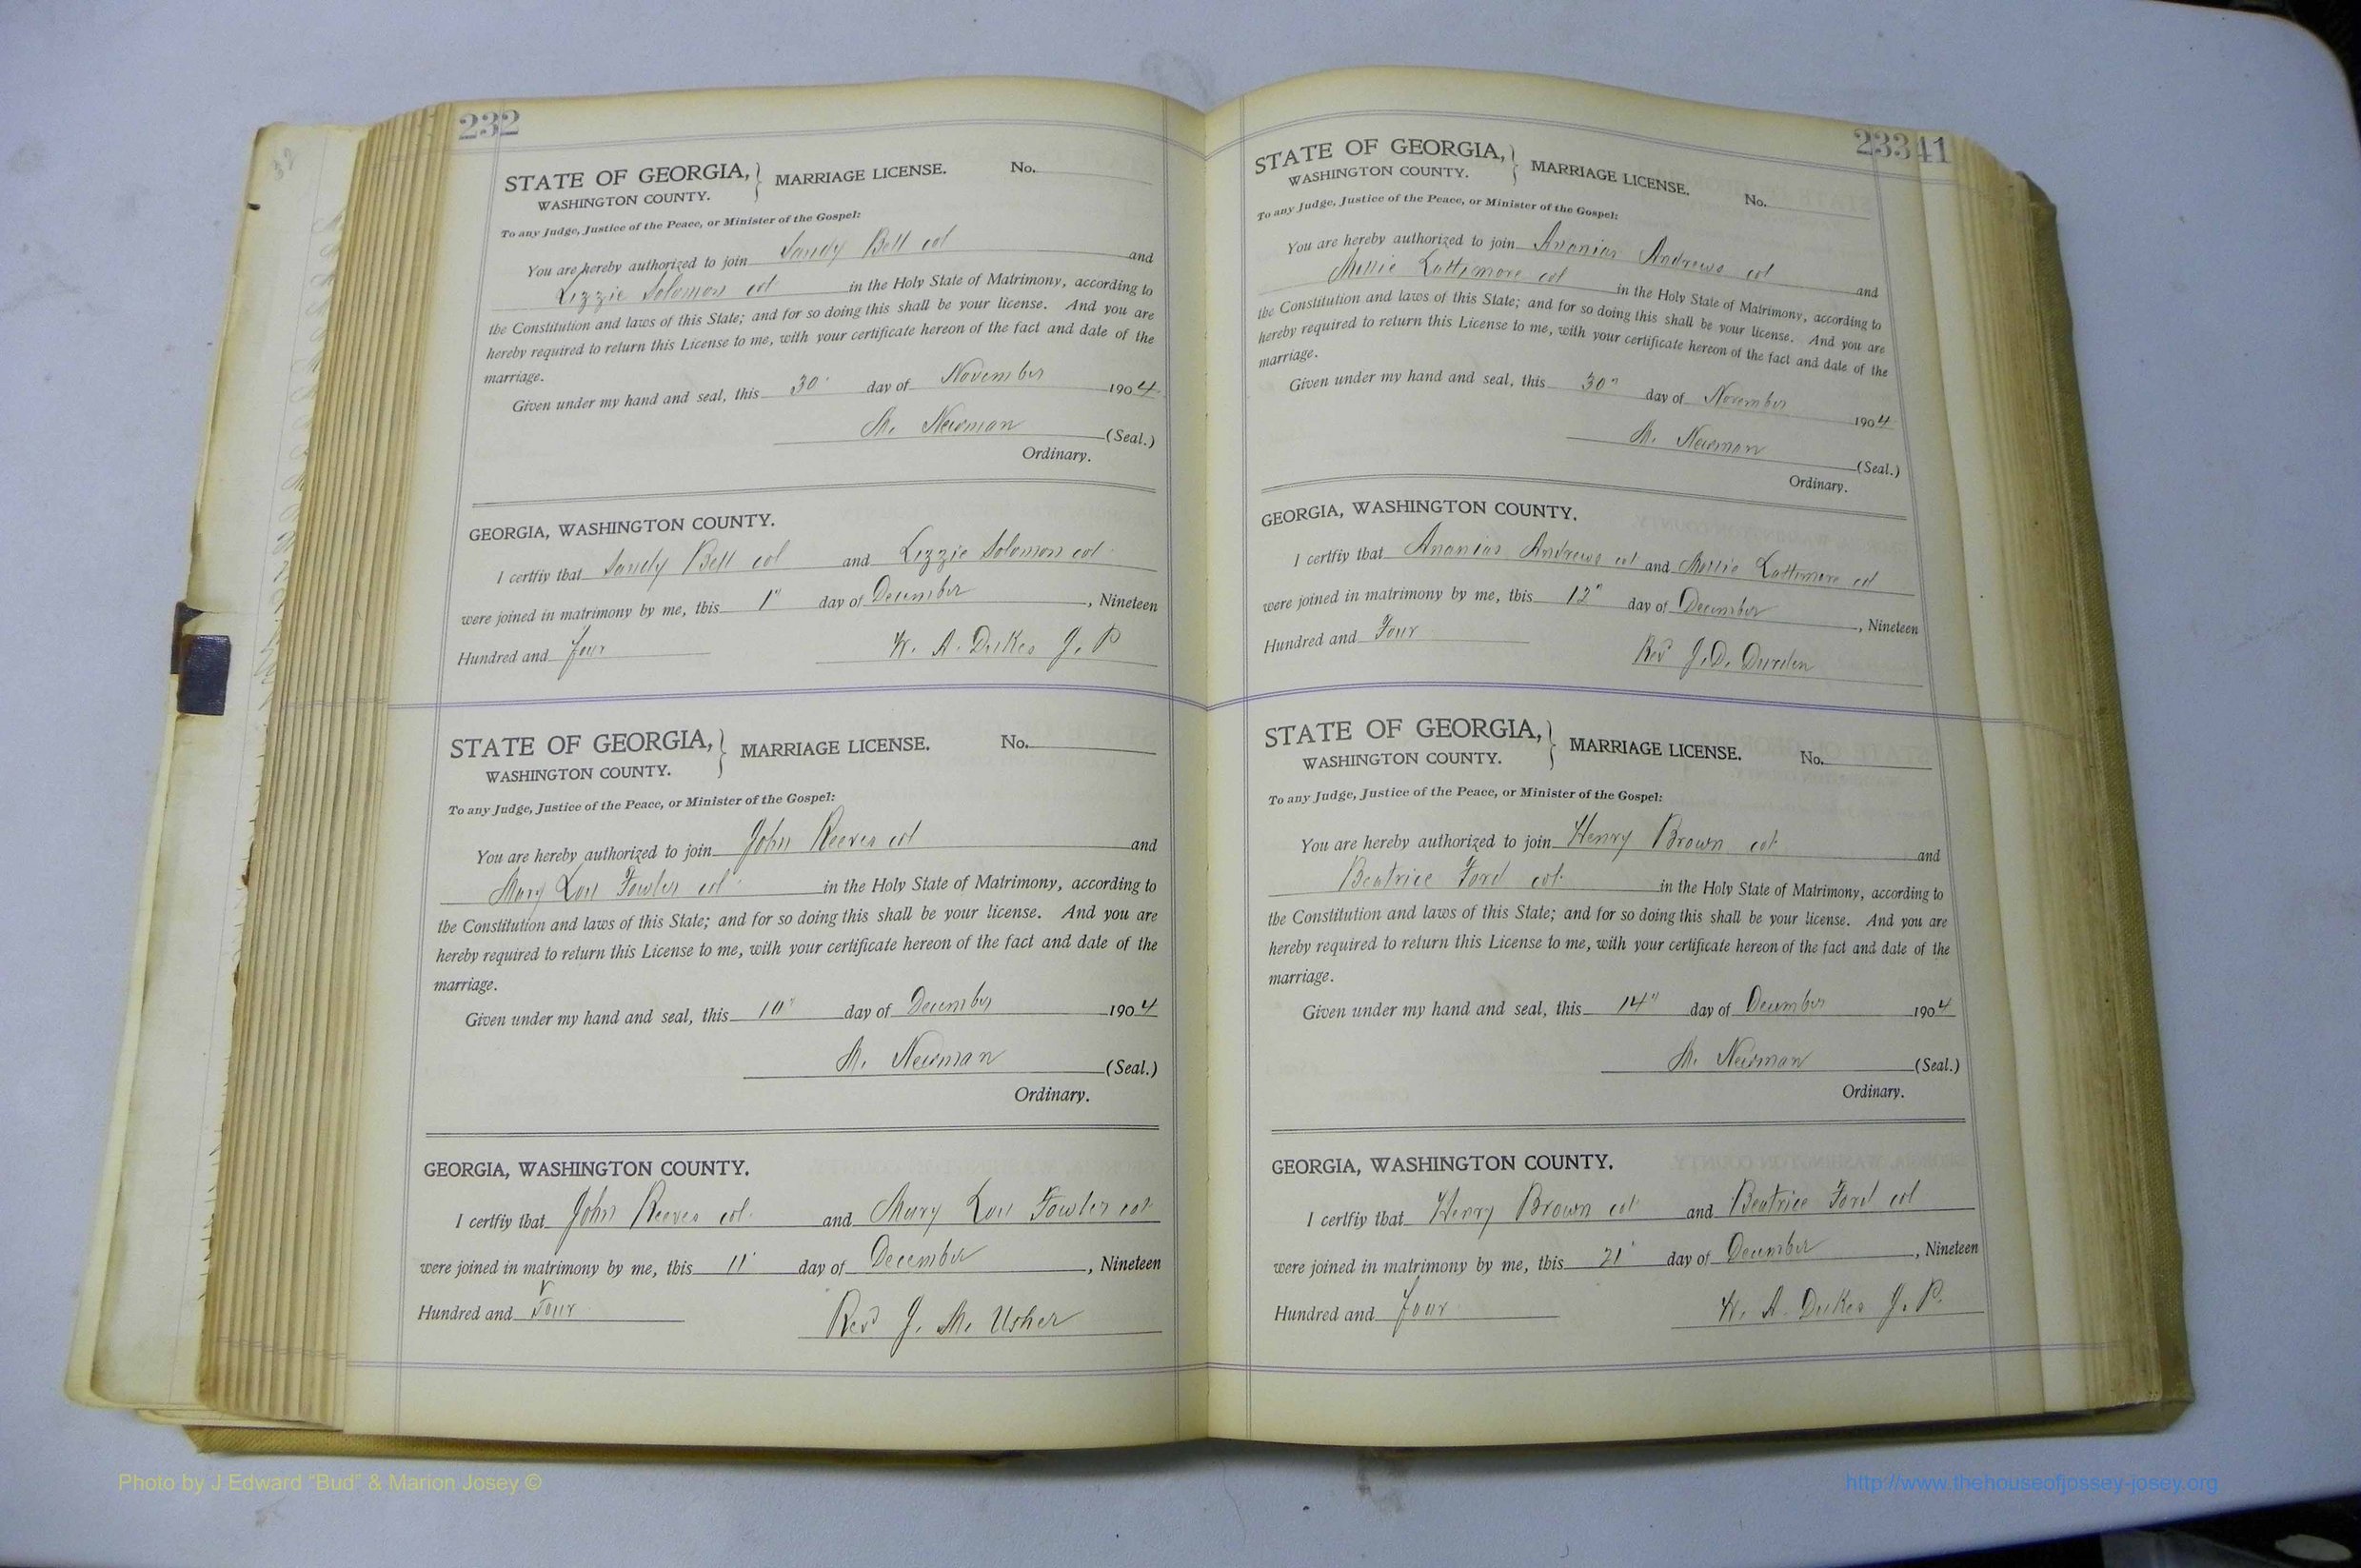 232
STATE OF GEORGIA, } MARRIAGE LICENSE. No.
WASHINGTON COUNTY.
To any Judge, Justice of the Peace, or Minister of the Gospel:
You are hereby authorized to join Sandy Bell col and
Lizzie Solomon col in the Holy State of Matrimony, according to
the Constitution and laws of this State; and for so doing this shall be your license. And you are
hereby required to return this License to me, with your certificate hereon of the fact and date of the
marriage.
Given under my hand and seal, this 30" day of November 1904
M. Newman (Seal.)
Ordinary.
GEORGIA, WASHINGTON COUNTY.
I certfiy that Sandy Bell col and Lizzie Solomon col
were joined in matrimony by me, this 1" day of December, Nineteen
Hundred and four W. A. Dukes J. P
STATE OF GEORGIA, } MARRIAGE LICENSE. No.
WASHINGTON COUNTY.
To any Judge, Justice of the Peace, or Minister of the Gospel:
You are hereby authorized to join John Reeves col and
Mary Lou Fowler col in the Holy State of Matrimony, according to
the Constitution and laws of this State; and for so doing this shall be your license. And you are
hereby required to return this License to me, with your certificate hereon of the fact and date of the
marriage.
Given under my hand and seal, this 10" day of December 1904
M. Newman (Seal.)
Ordinary.
GEORGIA, WASHINGTON COUNTY.
I certfiy that John Reeves col. and Mary Lou Fowler col
were joined in matrimony by me, this 11" day of December, Nineteen
Hundred and Four Rev J. M. Usher
233 41
STATE OF GEORGIA, } MARRIAGE LICENSE. No.
WASHINGTON COUNTY.
To any Judge, Justice of the Peace, or Minister of the Gospel:
You are hereby authorized to join Ananias Andrews col and
Mollie Lattimore col in the Holy State of Matrimony, according to
the Constitution and laws of this State; and for so doing this shall be your license. And you are
hereby required to return this License to me, with your certificate hereon of the fact and date of the
marriage.
Given under my hand and seal, this 30" day of November 1904
M. Newman (Seal.)
Ordinary.
GEORGIA, WASHINGTON COUNTY.
I certfiy that Ananias Andrews col and Mollie Lattimore col
were joined in matrimony by me, this 12" day of December, Nineteen
Hundred and Four Rev J. D. Durden
STATE OF GEORGIA, } MARRIAGE LICENSE. No.
WASHINGTON COUNTY.
To any Judge, Justice of the Peace, or Minister of the Gospel:
You are hereby authorized to join Henry Brown col and
Beatrice Ford col in the Holy State of Matrimony, according to
the Constitution and laws of this State; and for so doing this shall be your license. And you are
hereby required to return this License to me, with your certificate hereon of the fact and date of the
marriage.
Given under my hand and seal, this 14" day of December 1904
M. Newman (Seal.)
Ordinary.
GEORGIA, WASHINGTON COUNTY.
I certfiy that Henry Brown col and Beatrice Ford col
were joined in matrimony by me, this 21" day of December, Nineteen
Hundred and four W. A. Dukes J. P.
Photo by J Edward "Bud" & Marion Josey ©
http://www.thehouseofjossey-josey.org